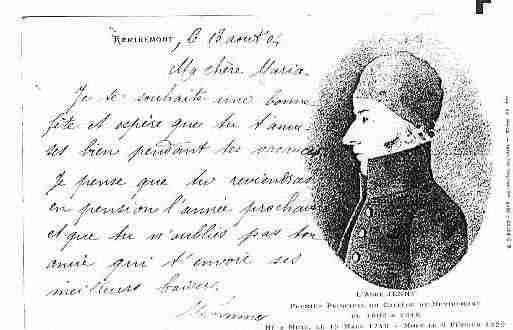 REMIREMONT, le 13 août 04
Ma chère Maria.
Je te souhaite une bonne
fête et espère que tu t'amu-
ses bien pendant tes vacances
Je pense que tu reviendras
en pension l'année prochai
et que tu n'oublies pas ton
amie qui t'envoie ses
meilleurs baisers.
L'ABBÉ JENNY
PREMIER PRINCIPAL DU COLLÈGE DE
DE 1802 A
NÉ A METZ, LE 15 MARS — MORT LE 6 FÉVRIER